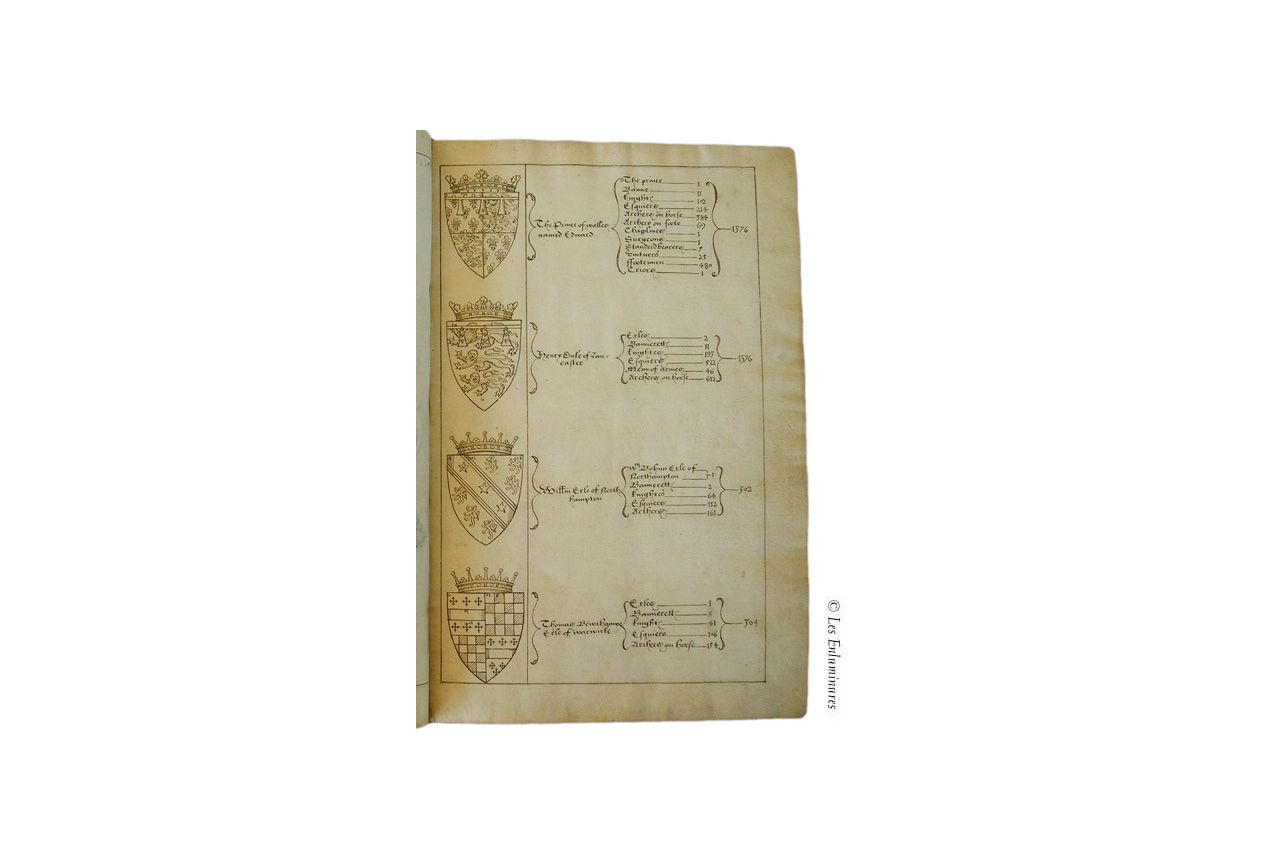 The Prince of walles
named Edward
The prince 1
Bane 11
Knights 102
Esquiers 214
Archers on horse 384
Archers on foote 69
Chaplines 1
Surgeons 1
Standerdbearers 5
Vintners 25
ffootemen 480
Criors 1
1376
Henry Duke of Lan-
caster
Erles 2
Bannerett 11
Knightes 195
Esquiers 512
Menn of Armes 46
Archers on horse 612
1376
Willm Erle of North
hampton
Wm Bohun Erle of
Northampton 1
Bannerett 2
Knightes 64
Esquiers 112
Archers 161
302
Thomas Bewchampe
Erle of warwicke
Erles 1
Bannerett
Knight 61
Esquiers 106
Archers on horse 154
304
© Les Enluminures